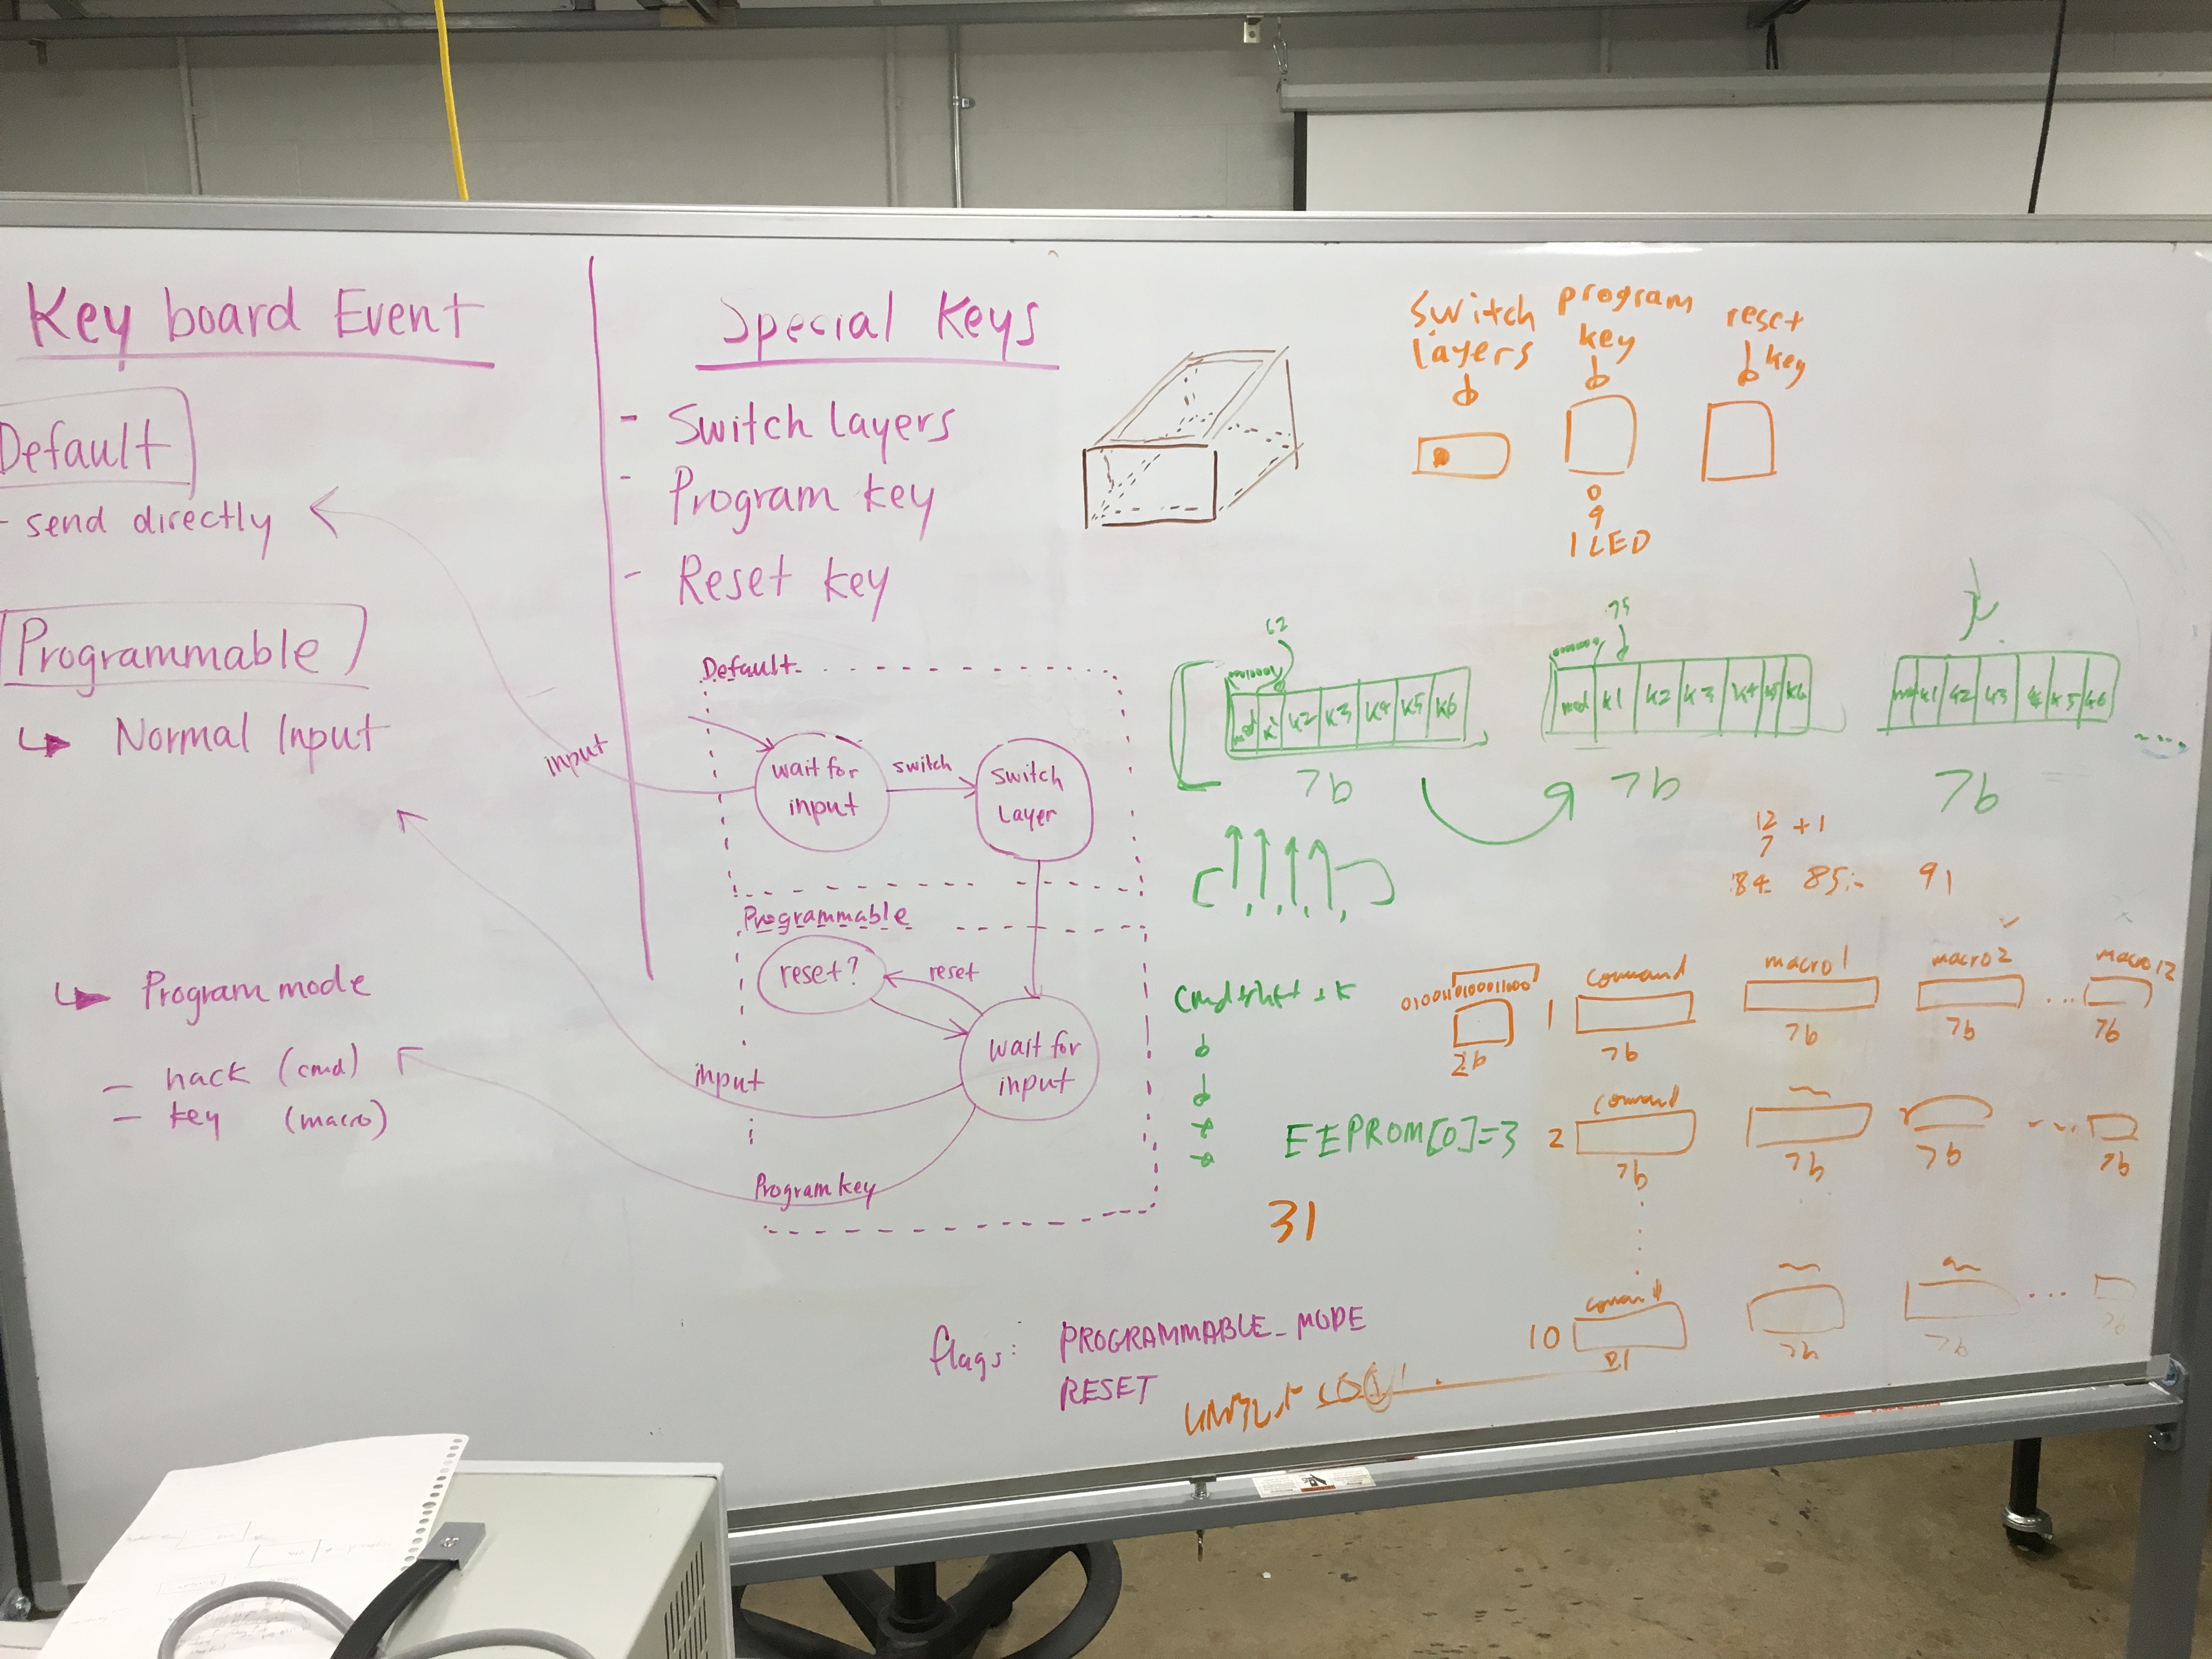 Key board Event
Default
- send directly
Programmable
Normal Input
Program mode
- hack (cmd)
- key (macro)
Special Keys
- Switch layers
- Program key
- Reset key
Default
input
wait for
input
switch
switch
Layer
Programmable
reset?
reset
wait for
input
input
Program key
flags: PROGRAMMABLE_MODE
RESET
switch
layers
program
key
reset
key
0
9
1 LED
62
mod k1 k2 k3 k4 k5 k6
7b
75
mod k1 k2 k3 k4 k5 k6
7b
k1 k2 k3 k4 k5 k6
7b
12 +1
7
84 85 91
cmd+shft+k
EEPROM[0]=3
31
2b
1
command
7b
macro1
7b
macro2
7b
...
macro12
7b
2
command
7b
7b
7b
7b
10
command
7b
7b
...
7b